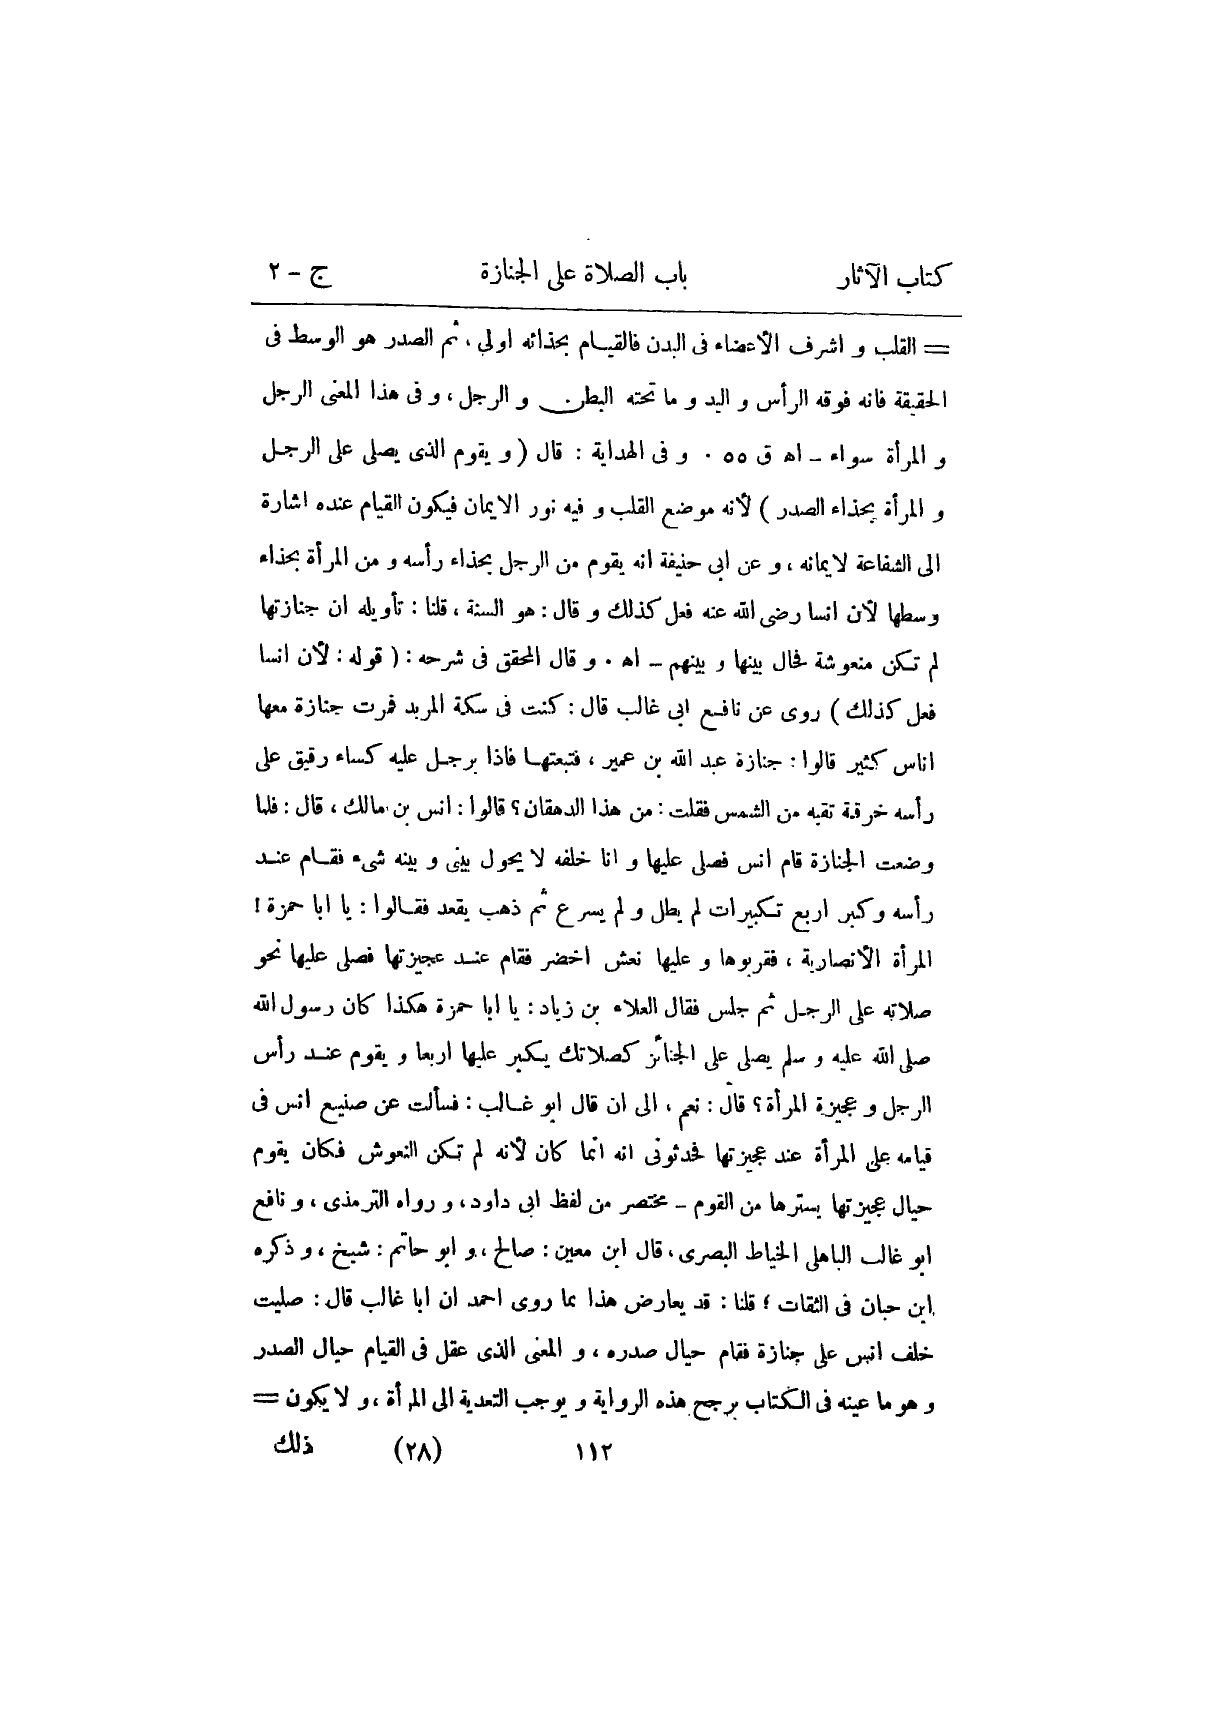 كتاب الآثار باب الصلاة على الجنازة ج - ٢
= القلب و اشرف الأعضاء فى البدن فالقيام بحذائه اولى ، ثم الصدر هو الوسط فى
الحقيقة فانه فوقه الرأس و اليد و ما تحته البطن و الرجل ، و فى هذا المعنى الرجل
و المرأة سواء – اه ق ٥٥ . و فى الهداية : قال ( و يقوم الذى يصلى على الرجل
و المرأة بحذاء الصدر ) لأنه موضع القلب و فيه نور الايمان فيكون القيام عنده اشارة
الى الشفاعة لايمانه ، و عن ابى حنيفة انه يقوم من الرجل بحذاء رأسه و من المرأة بحذاء
وسطها لأن انسا رضى الله عنه فعل كذلك و قال : هو السنة ، قلنا : تأويله ان جنازتها
لم تكن منعوشة فحال بينها و بينهم – اه . و قال المحقق فى شرحه : ( قوله : لأن انسا
فعل كذلك ) روى عن نافع ابى غالب قال : كنت فى سكة المربد فمرت جنازة معها
اناس كثير قالوا : جنازة عبد الله بن عمير ، فتبعتها فاذا برجل عليه كساء رقيق على
رأسه خرقة تقيه من الشمس فقلت : من هذا الدهقان ؟ قالوا : انس بن مالك ، قال : فلما
وضعت الجنازة قام انس فصلى عليها و انا خلفه لا يحول بينى و بينه شىء فقام عند
رأسه وكبر اربع تكبيرات لم يطل و لم يسرع ثم ذهب يقعد فقالوا : يا ابا حمزة !
المرأة الأنصارية ، فقربوها و عليها نعش اخضر فقام عند عجيزتها فصلى عليها نحو
صلاته على الرجل ثم جلس فقال العلاء بن زياد : يا ابا حمزة هكذا كان رسول الله
صلى الله عليه و سلم يصلى على الجنائز كصلاتك يكبر عليها اربعا و يقوم عند رأس
الرجل و عجيزة المرأة ؟ قال : نعم ، الى ان قال ابو غالب : فسألت عن صنيع انس فى
قيامه على المرأة عند عجيزتها فحدثونى انه انما كان لأنه لم تكن النعوش فكان يقوم
حيال عجيزتها يسترها من القوم – مختصر من لفظ ابى داود ، و رواه الترمذى ، و نافع
ابو غالب الباهلى الخياط البصرى ، قال ابن معين : صالح ، و ابو حاتم : شيخ ، و ذكره
ابن حبان فى الثقات ؛ قلنا : قد يعارض هذا بما روى احمد ان ابا غالب قال : صليت
خلف انس على جنازة فقام حيال صدره ، و المعنى الذى عقل فى القيام حيال الصدر
و هو ما عينه فى الكتاب يرجح هذه الرواية و يوجب التعدية الى المرأة ، و لا يكون =
١١٢ (٢٨) ذلك